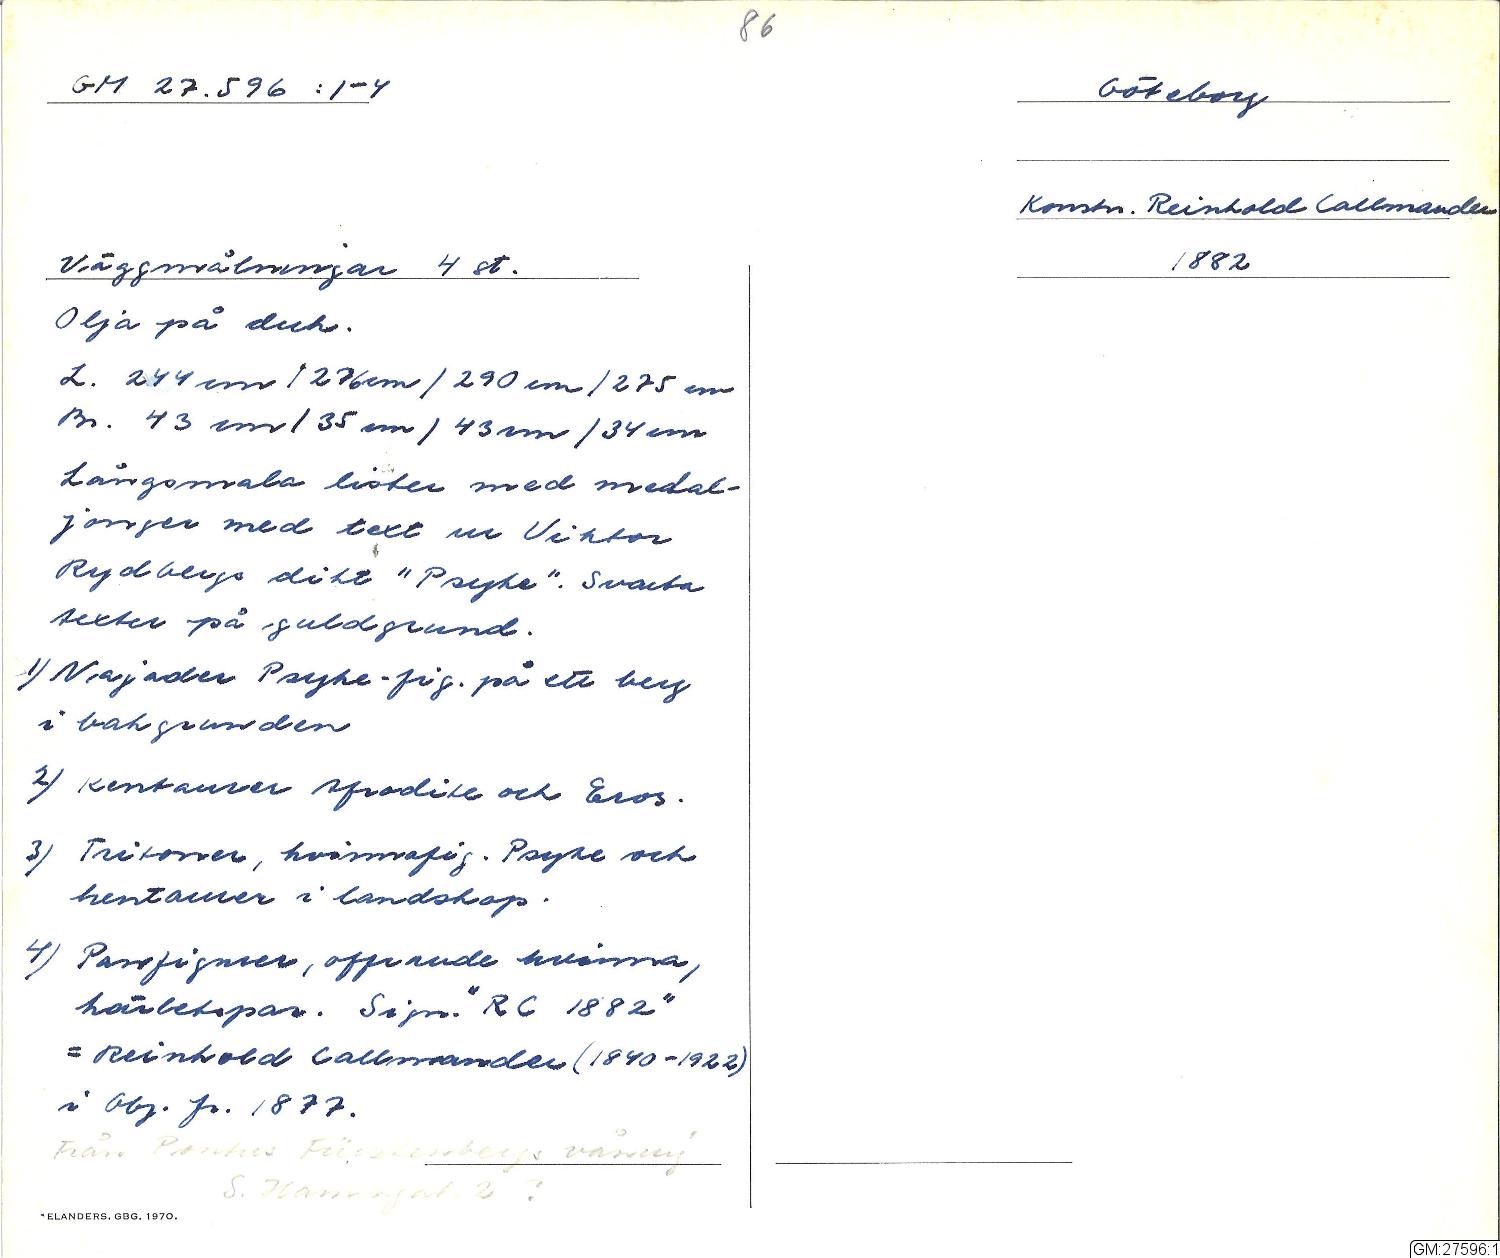 86
GM 27.596 :1-4
Göteborg
Konstn. Reinhold Callmander
1882
Väggmålningar 4 st.
Olja på duk.
L. 244 cm / 276 cm / 290 cm / 275 cm
Br. 43 cm / 35 cm / 43 cm / 34 cm
Långsmala lister med medal-
jonger med text ur Viktor
Rydbergs dikt "Psyke". Svarta
texter på guldgrund.
1) Najader Psyke-fig. på ett berg
i bakgrunden
2) Kentaurer Afrodite och Eros.
3) Tritoner, kvinnofig. Psyke och
kentaurer i landskap.
4) Panfigurer, offrande kvinna,
kärlekspar. Sign. "RC 1882"
= Reinhold Callmander (1840-1922)
i Gbg. fr. 1877.
Från Pontus Fürstenbergs våning
S. Hamngat. 2 ?
ELANDERS. GBG. 1970.
GM:27596:1